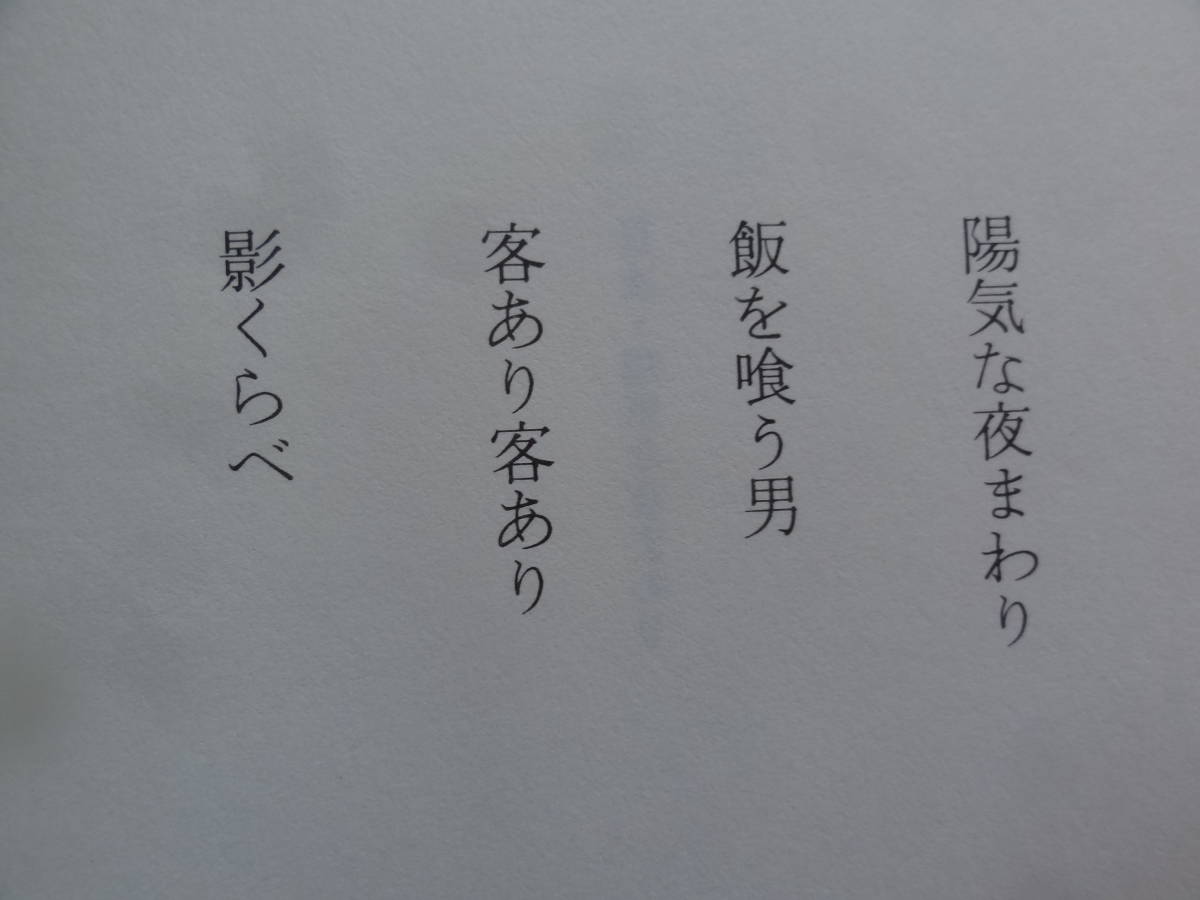 陽気な夜まわり
飯を喰う男
客あり客あり
影くらべ